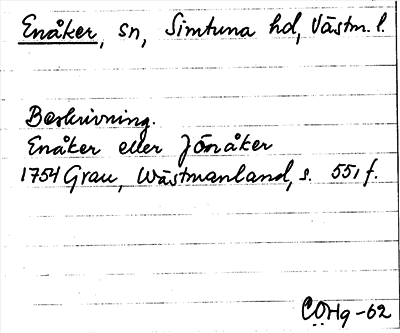 Enåker, sn, Simtuna hd, Västm. l.
Beskrivning.
Enåker eller Jönåker
1754 Grau, Wästmanland, s. 551 f.
COHg -62